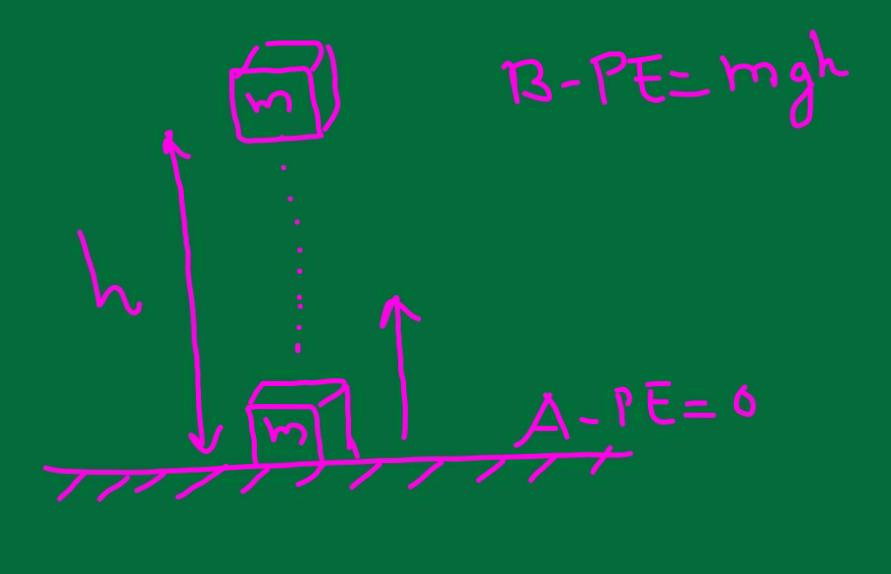 m
B-PE=mgh
h
m
A-PE=0